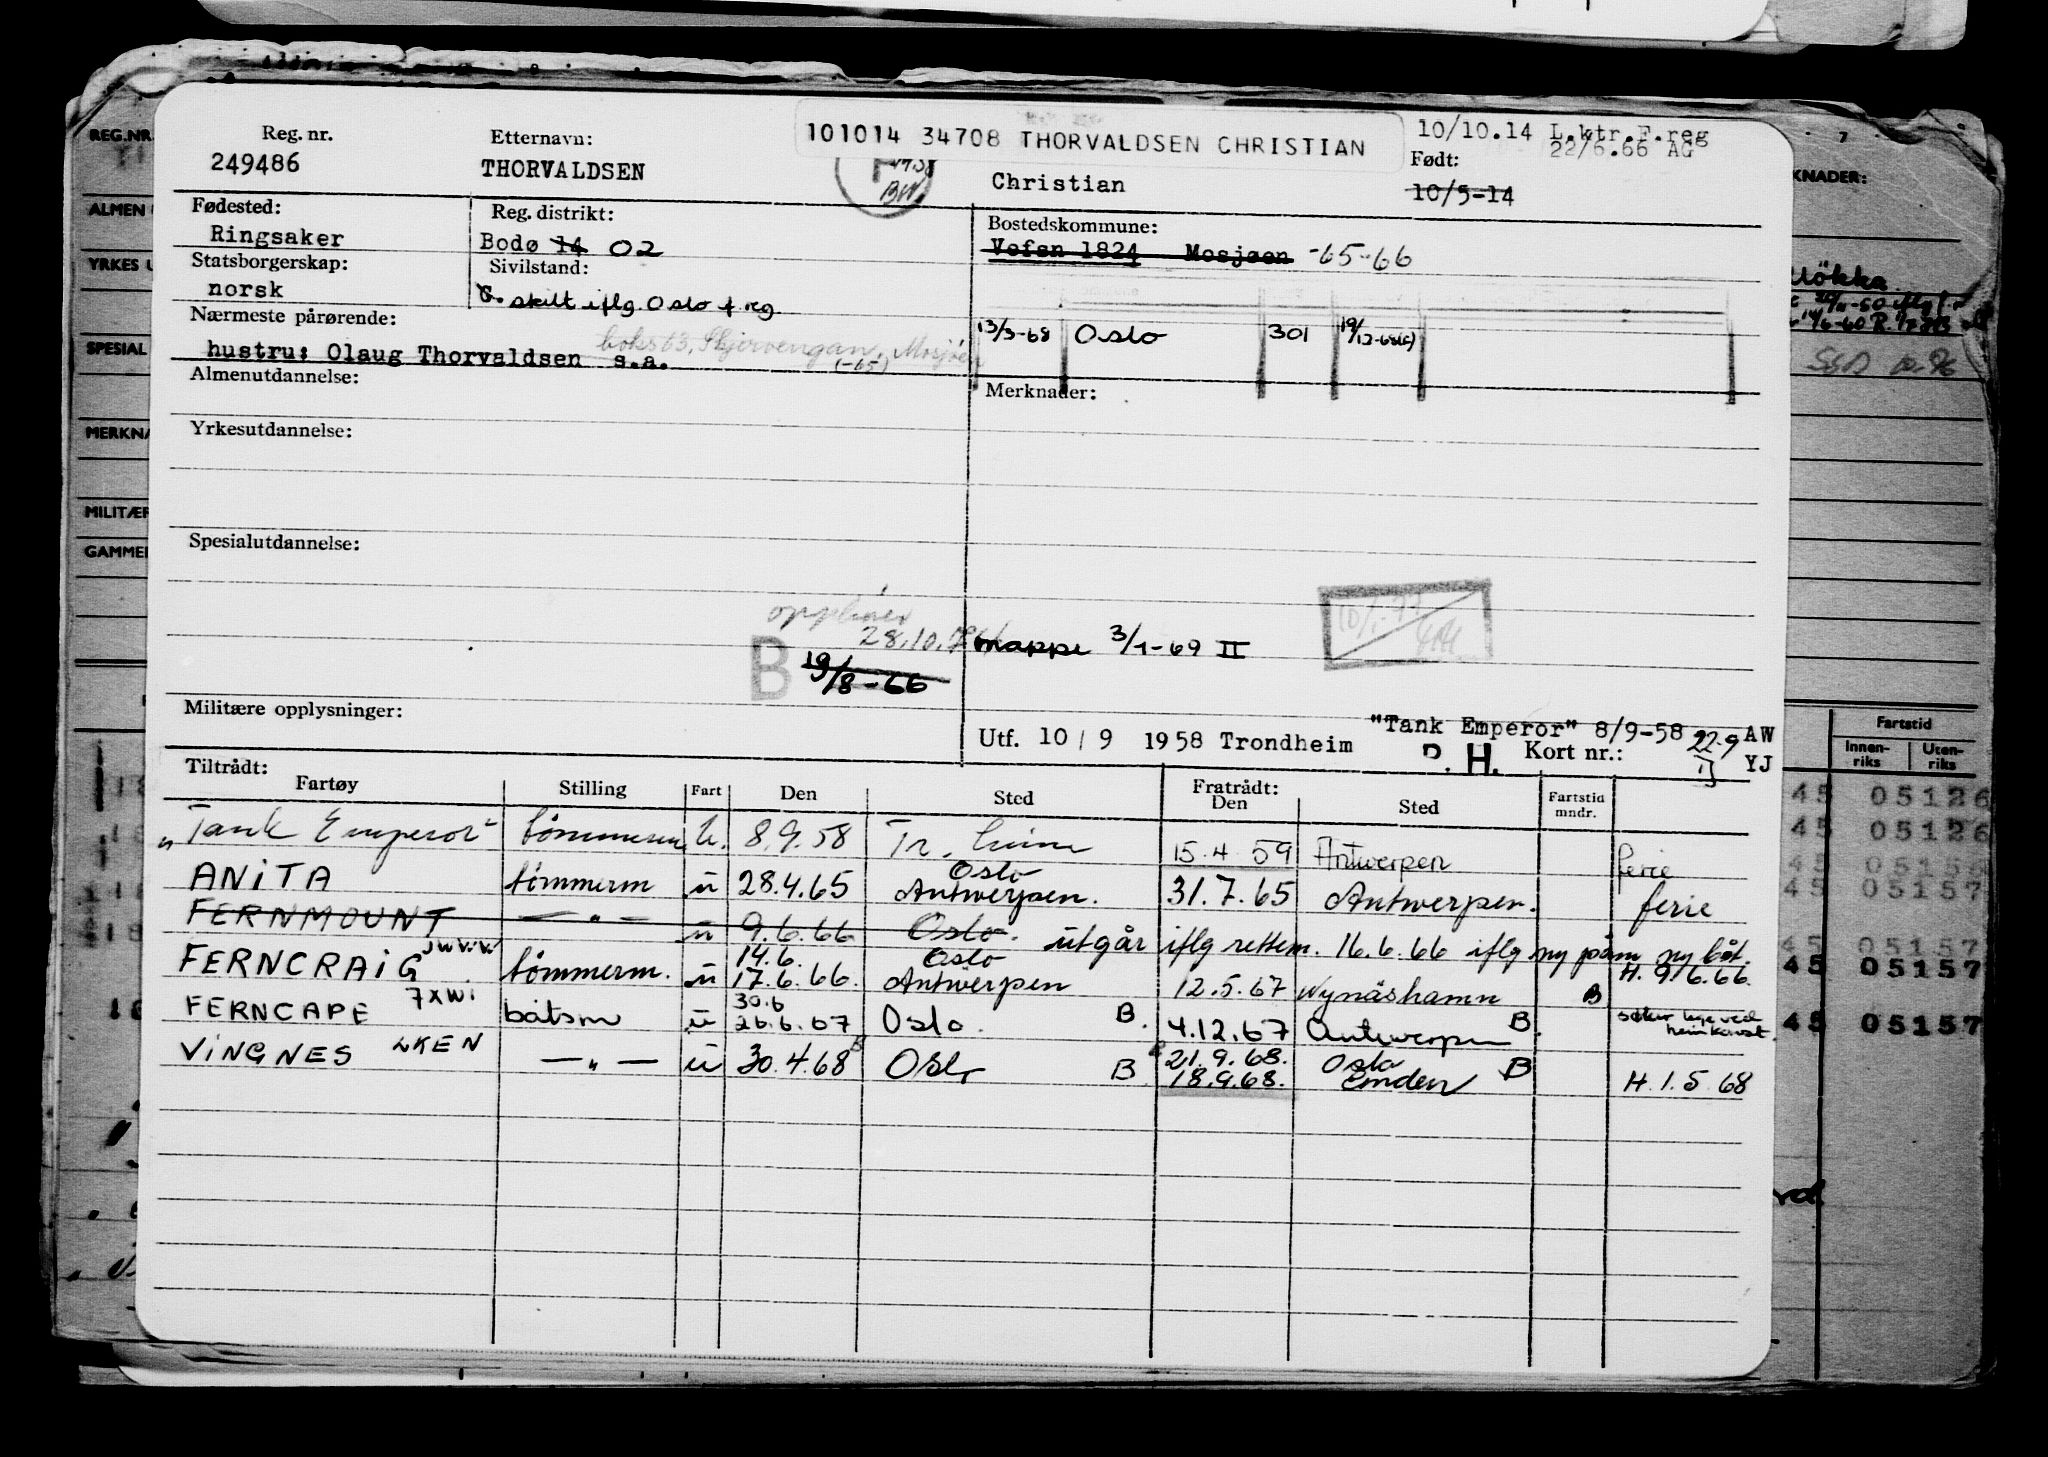 Reg. nr.
249486
Etternavn:
THORVALDSEN
101014 34708 THORVALDSEN CHRISTIAN
Christian
10/10.14 L.ktr.F.reg
22/6.66 AG
Født:
10/5-14
Fødested:
Ringsaker
Reg. distrikt:
Bodø 14 02
Bostedskommune:
Vefsn 1824 Mosjøen -65-66
Statsborgerskap:
norsk
Sivilstand:
G. skilt iflg. Oslo f.reg.
Nærmeste pårørende:
hustru: Olaug Thorvaldsen s.a.
boks 63, Mosjøen
(-65)
13/3-68 Oslo 301
Almenutdannelse:
Merknader:
Yrkesutdannelse:
Spesialutdannelse:
28.10.
B 19/8-66
mappe 3/1-69 II
Militære opplysninger:
"Tank Emperor" 8/9-58 22.9 AW
Utf. 10/9 1958 Trondheim
Kort nr.: YJ
Tiltrådt:
Fartøy Stilling Fart Den Sted Fratrådt: Den Sted Fartstid mndr.
"Tank Emperor" tømmerm U. 8.9.58 15.4 59 Antwerpen ferie
ANITA tømmerm u 28.4.65 Oslo Antwerpen. 31.7.65 Antwerpen. ferie
FERNMOUNT — " — u 9.6.66 Oslo. utgår iflg rettem. 16.6.66 iflg ny påm ny båt.
FERNCRAIG tømmerm. u 14.6. 17.6.66. Oslo Antwerpen 12.5.67 Nynäshamn B H. 9/6.66.
FERNCAPE 7XWI båtsm u 30.6 26.6.67 Oslo. B. 4.12.67 Antwerpen B.
VINGNES LKEN — " — u 30.4.68 B Oslo B 21.9.68. 18.9.68. Oslo Emden B H. 1.5 68
REG.NR.
ALMEN
SPESIAL
MERKNA
MILITÆR
GAMMEL
KNADER:
7
Fartstid
Innen-riks
Uten-riks
45 05126
45 05126
45 05156
45 05157
45 05157
45 05157
45 05157